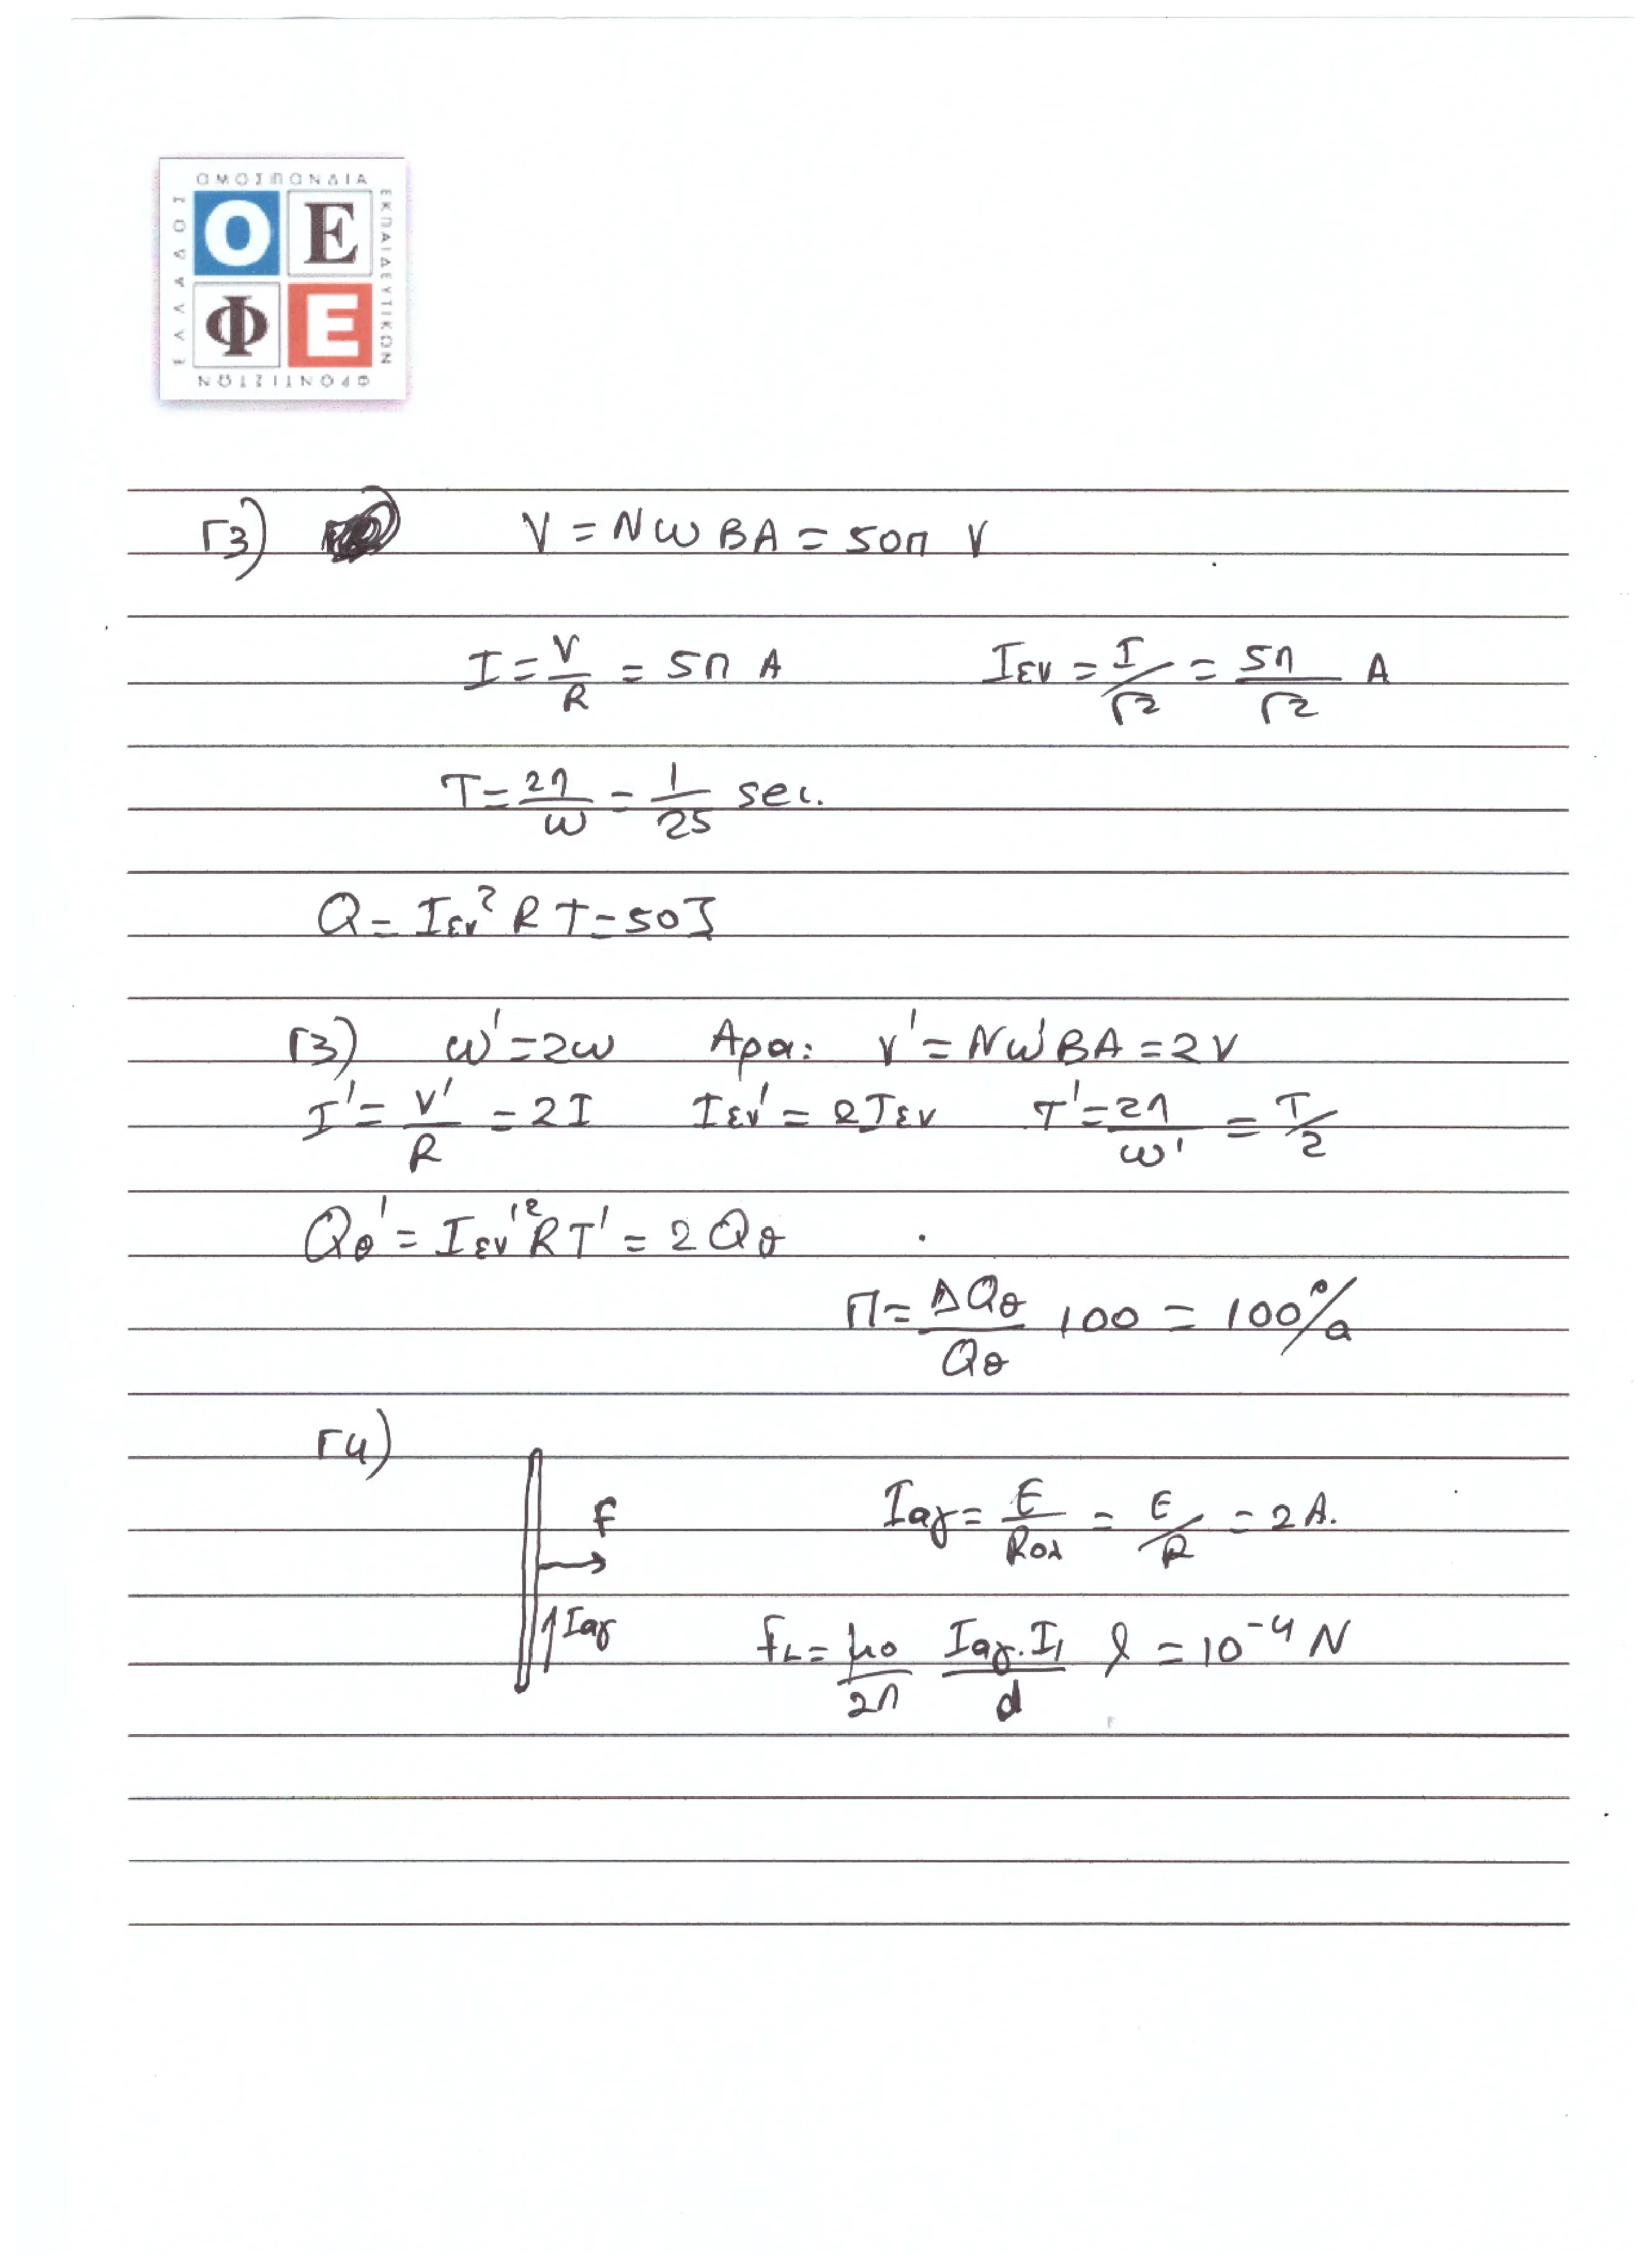 ΟΜΟΣΠΟΝΔΙΑ
ΕΚΠΑΙΔΕΥΤΙΚΩΝ
ΦΡΟΝΤΙΣΤΩΝ
ΕΛΛΑΔΟΣ
Ο Ε
Φ Ε
Γ3) V = NωBA = 50π V
I = V/R = 5π A Iεν = I/√2 = 5π/√2 A
T = 2π/ω = 1/25 sec.
Q = Iεν² R T = 50J
Γ3) ω' = 2ω Αρα: V' = Nω'BA = 2V
I' = V'/R = 2I Iεν' = 2Iεν T' = 2π/ω' = T/2
Qθ' = Iεν'² R T' = 2Qθ
Π = ΔQθ/Qθ 100 = 100%
Γ4)
F Iαγ = E/Rολ = E/R = 2A.
Iαγ FL = μ0/2π Iαγ.I1/d l = 10⁻⁴ N